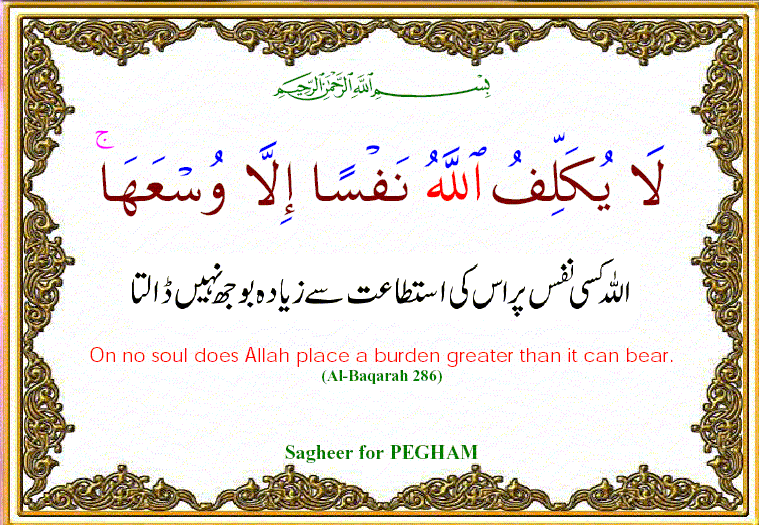 بِسْمِ اللَّهِ الرَّحْمَٰنِ الرَّحِيمِ
لَا يُكَلِّفُ ٱللَّهُ نَفْسًا إِلَّا وُسْعَهَا ۚ
اللہ کسی نفس پر اس کی استطاعت سے زیادہ بوجھ نہیں ڈالتا
On no soul does Allah place a burden greater than it can bear.
(Al-Baqarah 286)
Sagheer for PEGHAM